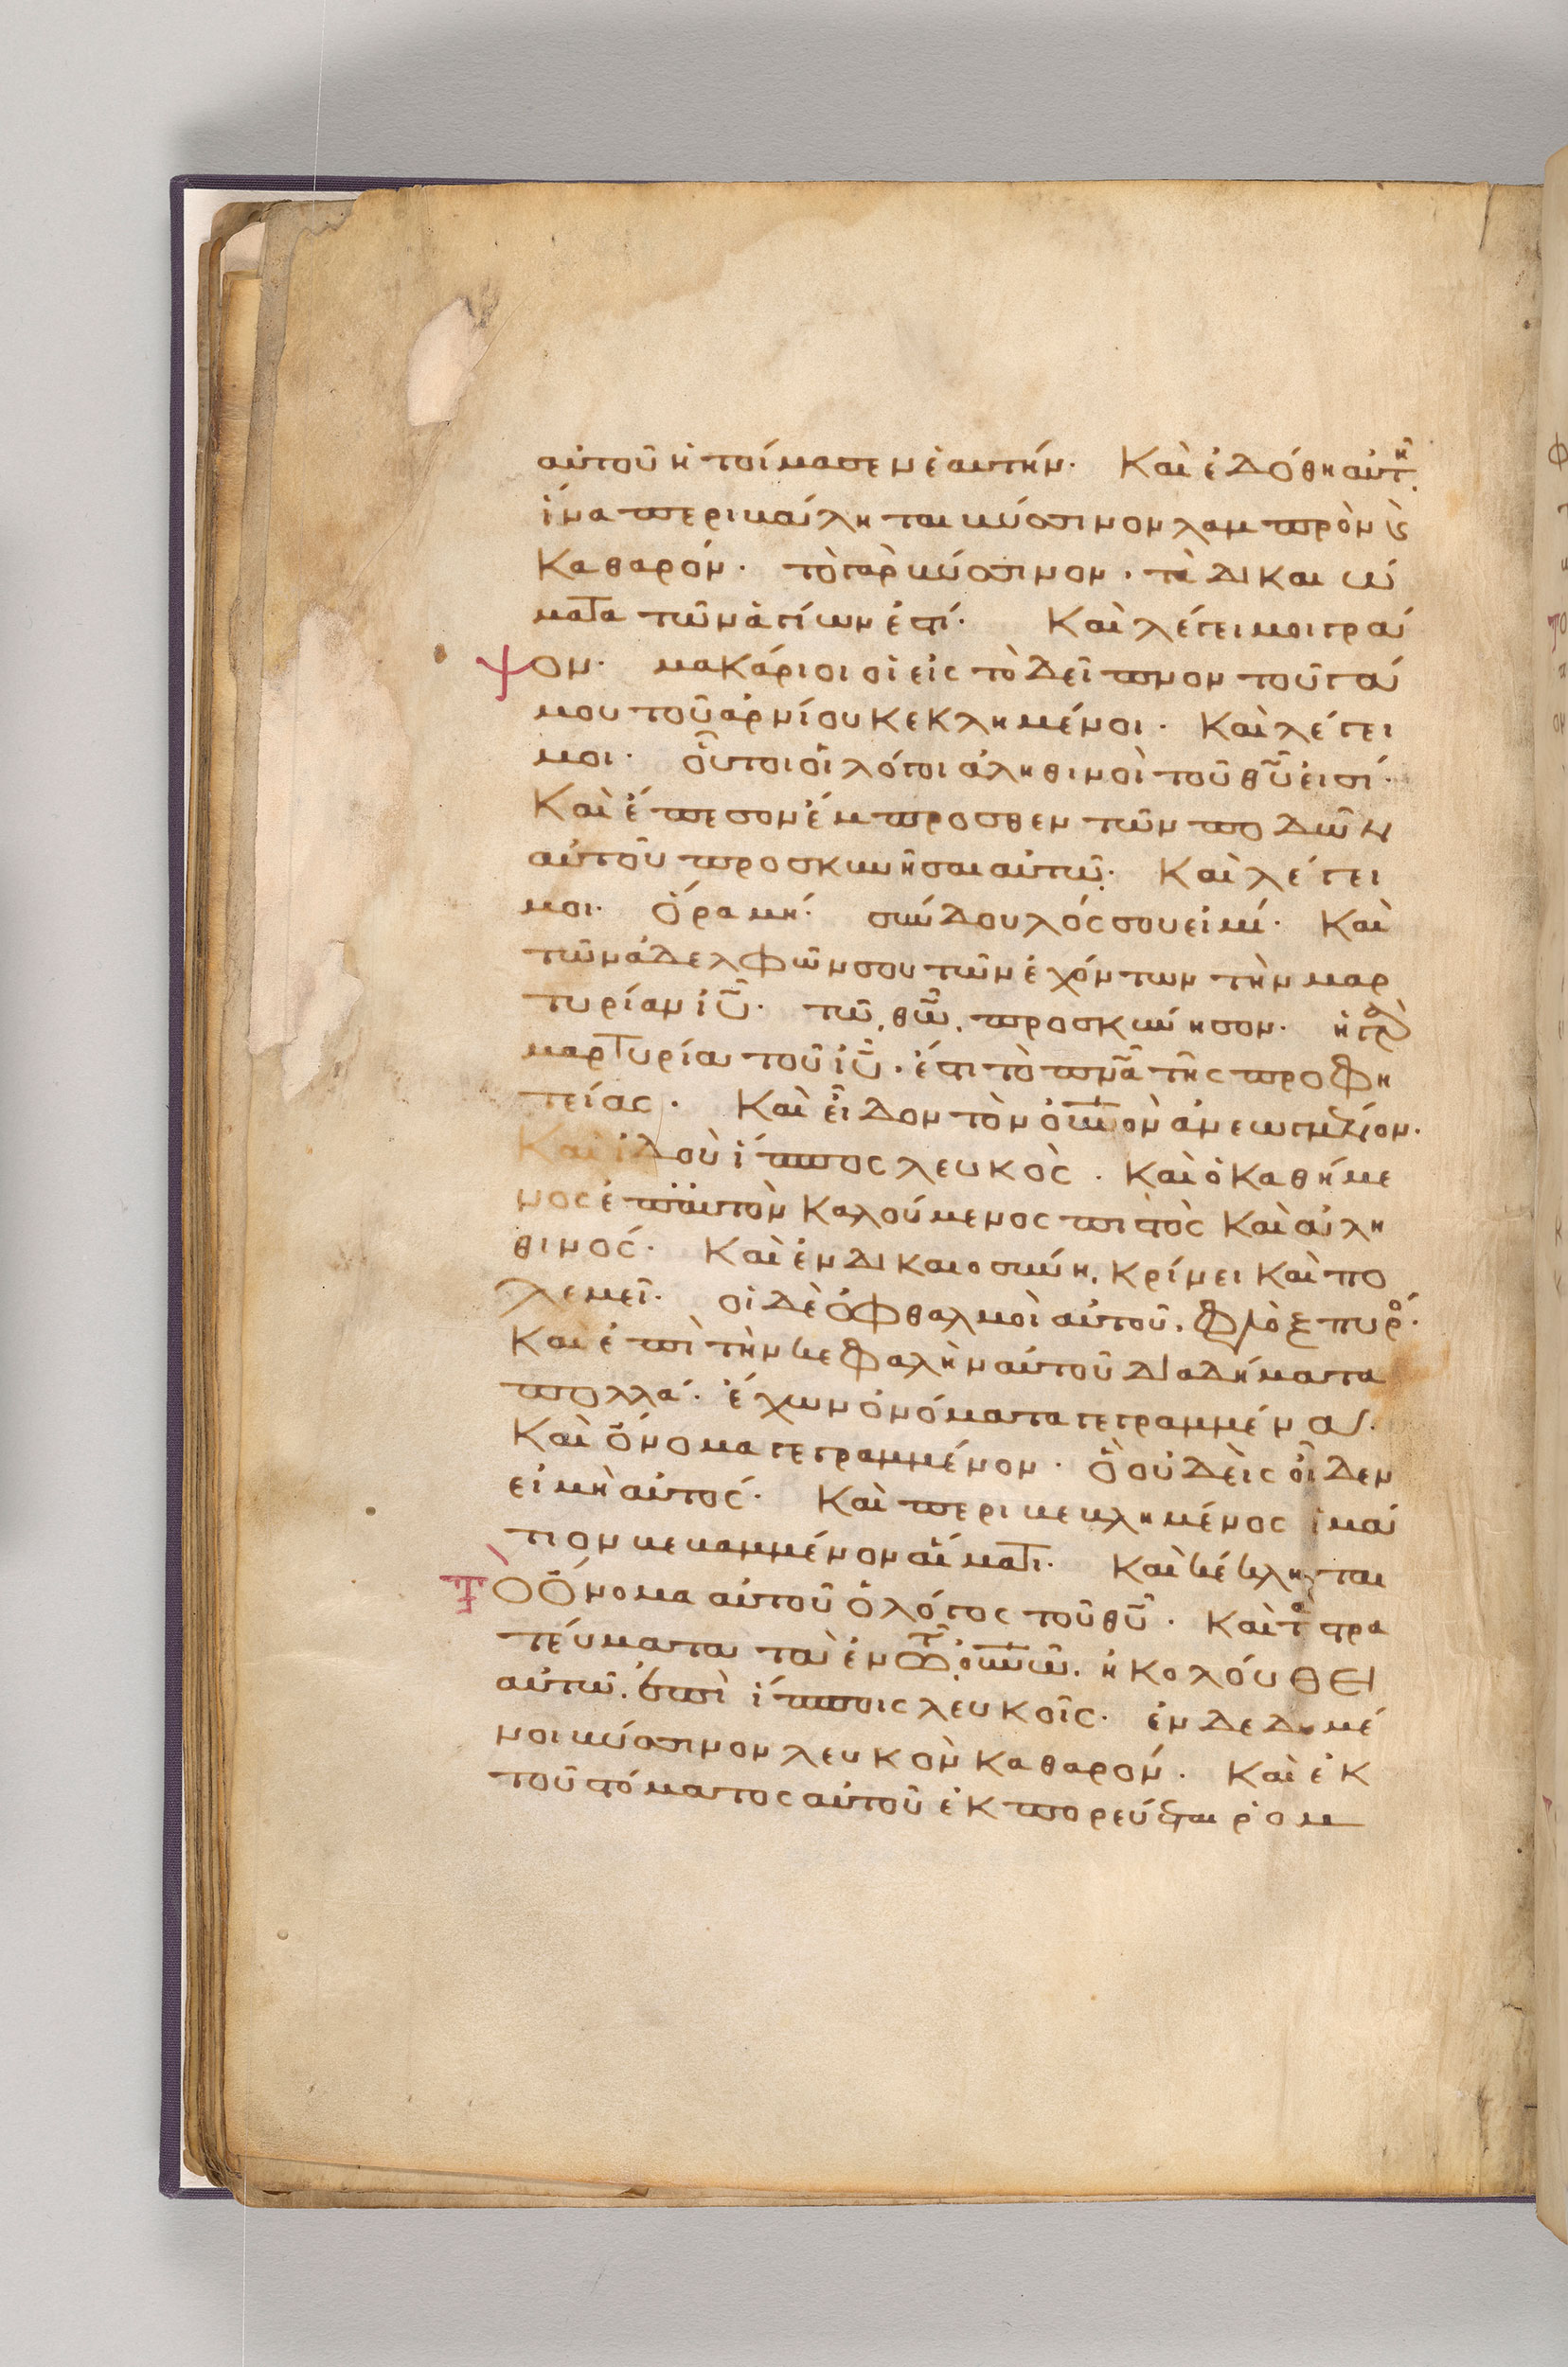 αὐτοῦ ἡτοίμασεν ἑαυτήν· Καὶ ἐδόθη αὐτῆ
ἵνα περικάλληται κύσσινον λαμπρὸν ϗ
Καθαρόν· τὸ γὰρ κύσσινον· τὰ δικαιώ
ματα τῶν ἁγίων ἐστί· Καὶ λέγει μοι γρά
ψον· μακάριοι οἱ εἰς τὸ δεῖπνον τοῦ γά
μου τοῦ ἀρνίου κεκλημένοι· Καὶ λέγει
μοι· οὗτοι οἱ λόγοι ἀληθινοὶ τοῦ θῦ εἰσί·
Καὶ ἔπεσον ἔμπροσθεν τῶν ποδῶν
αὐτοῦ προσκυνῆσαι αὐτῶ· Καὶ λέγει
μοι· ὅρα μή· σύνδουλός σου εἰμί· Καὶ
τῶν ἀδελφῶν σου τῶν ἐχόντων τὴν μαρ
τυρίαν ἰῦ· τῶ θῶ προσκύνησον· ἡ γὰρ
μαρτυρία τοῦ ἰῦ· ἐστι τὸ πνᾶ τῆς προφη
τείας· Καὶ εἶδον τὸν οὐνον ἀνεωγμένον·
Καὶ ἰδοὺ ἵππος λευκὸς· Καὶ ὁ καθήμε
νος ἐπ' αυτὸν καλούμενος πιστὸς Καὶ ἀλη
θινός· Καὶ ἐν δικαιοσύνη κρίνει Καὶ πο
λεμεῖ· οἱ δὲ ὀφθαλμοὶ αὐτοῦ, φλὸξ πυρός·
Καὶ ἐπὶ τὴν κεφαλὴν αὐτοῦ διαδήματα
πολλά· ἔχων ὀνόματα γεγραμμένα·
Καὶ ὄνομα γεγραμμένον· ὃ οὐδεὶς οἶδεν
εἰ μὴ αὐτός· Καὶ περικεκλημένος ἱμά
τιον κεκαμμένον αἵματι· Καὶ κέκληται
τὸ ὄνομα αὐτοῦ ὁ λόγος τοῦ θῦ· Καὶ τὰ στρα
τεύματα τὰ ἐν τῶ οὐνῶ ἠκολούθει
αὐτῶ ἐπὶ ἵπποις λευκοῖς· ἐνδεδυμέ
νοι κύσσινον λευκὸν καθαρόν· Καὶ ἐκ
τοῦ στόματος αὐτοῦ ἐκπορεύεται ῥομ